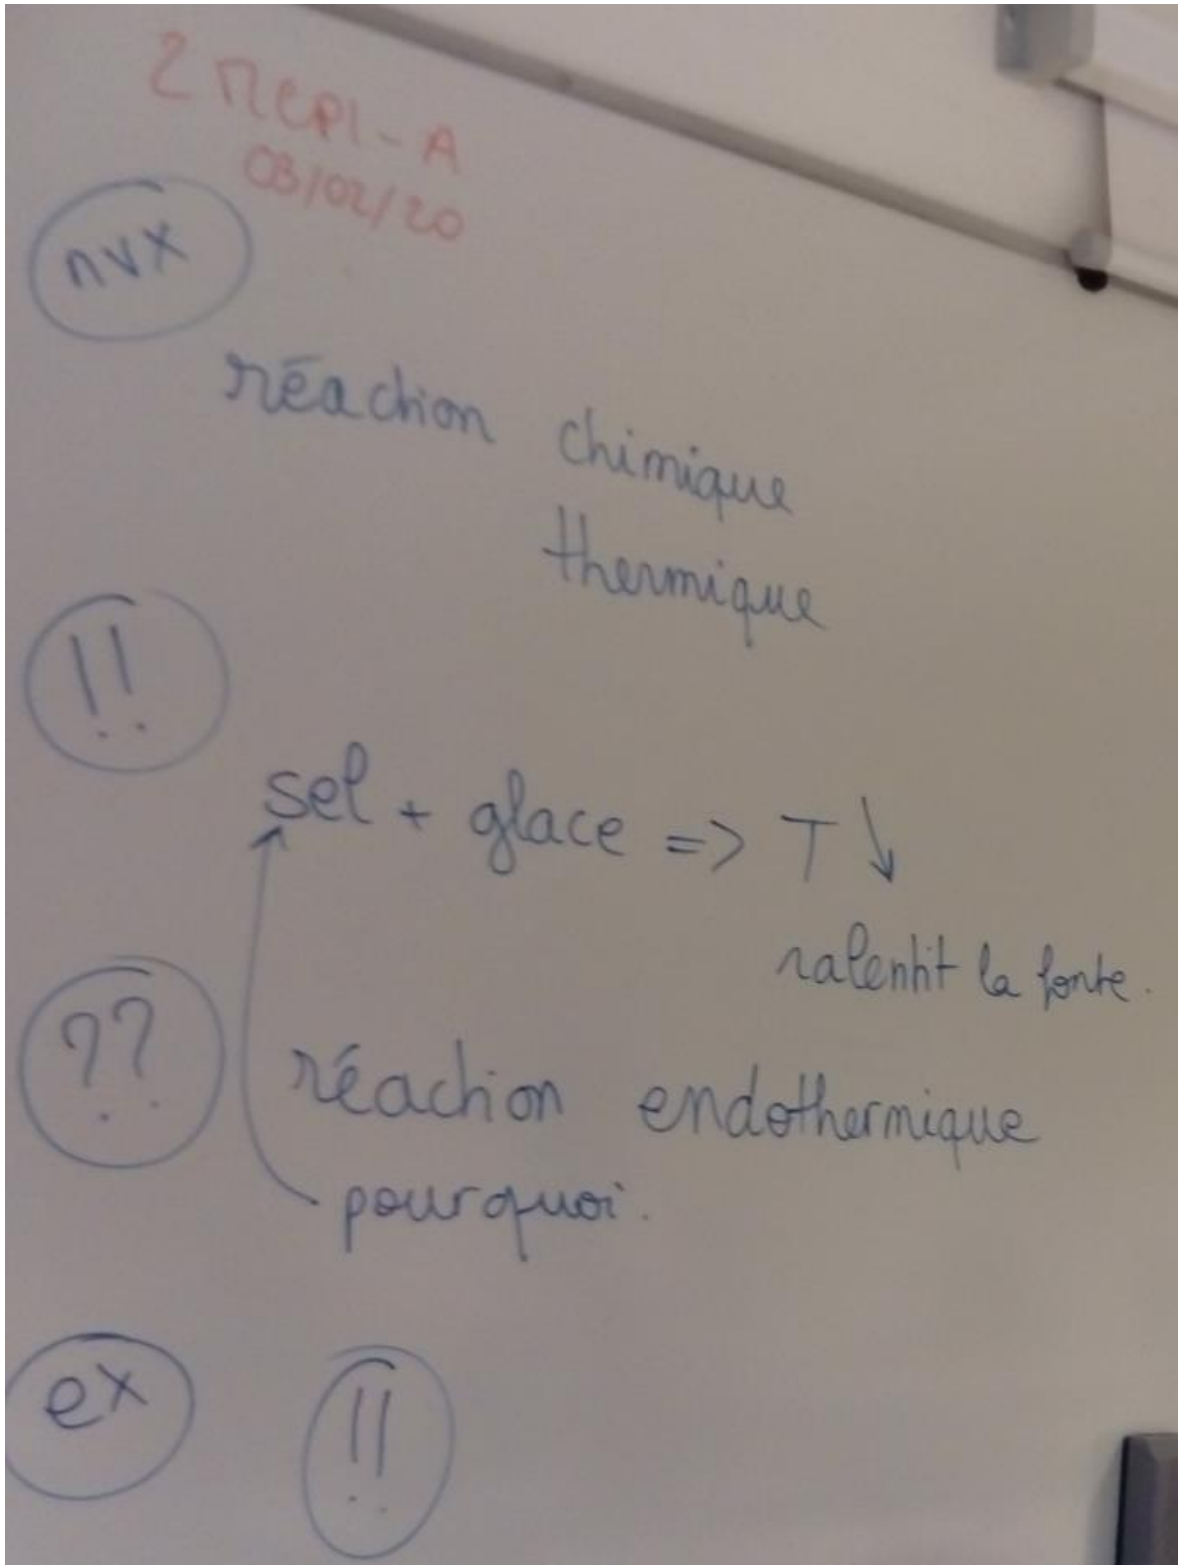 2 MCPI-A
03/02/20
nvx
réaction chimique
thermique
!!
sel + glace => T ↓
ralentit la fonte.
??
réaction endothermique
pourquoi.
ex !!